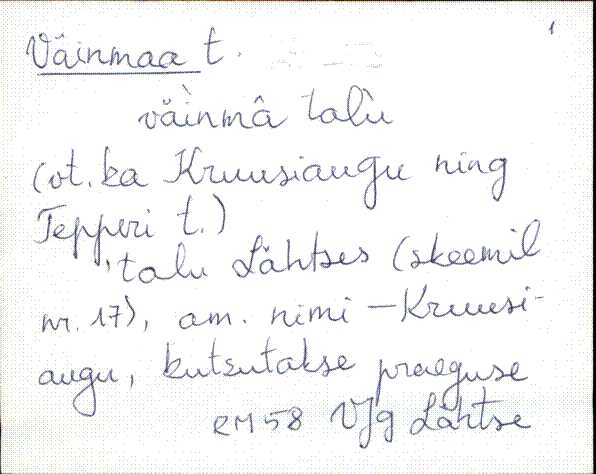 1
Väinmaa t.
väìnmâ talù
(vt. ka Kruusiaugu ning
Tepperi t.)
'talu Lähtses (skeemil
nr. 17), am. nimi – Kruusi-
augu, kutsutakse praeguse
RM 58 VJg Lähtse